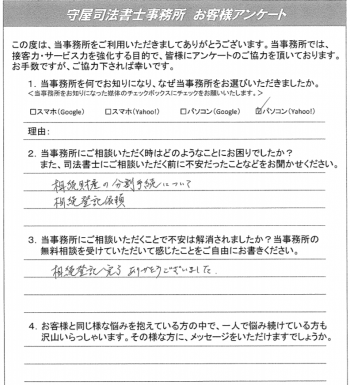 守屋司法書士事務所 お客様アンケート
この度は、当事務所をご利用いただきましてありがとうございます。当事務所では、
接客力・サービス力を強化する目的で、皆様にアンケートのご協力を頂いております。
お手数ですが、ご協力下されば幸いです。
1. 当事務所を何でお知りになり、なぜ当事務所をお選びいただきましたか。
<当事務所をお知りになった媒体のチェックボックスにチェックをお願いいたします。>
□スマホ(Google) □スマホ(Yahoo!) □パソコン(Google) ☑パソコン(Yahoo!)
理由:
2. 当事務所にご相談いただく時はどのようなことにお困りでしたか?
また、司法書士にご相談いただく前に不安だったことなどをお聞かせください。
相続財産の分割手続について
相続登記依頼
3. 当事務所にご相談いただくことで不安は解消されましたか?当事務所の
無料相談を受けていただいて感じたことをご自由にお書きください。
相続登記完了 ありがとうございました.
4. お客様と同じ様な悩みを抱えている方の中で、一人で悩み続けている方も
沢山いらっしゃいます。その様な方に、メッセージをいただけますでしょうか。